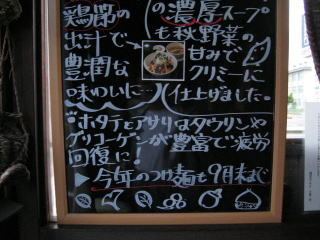 鶏節の
出汁で
豊潤な
味わいに…
の濃厚スープ
も秋野菜の
甘みで
クリミーに
仕上げました。
ホタテとアサリはタウリンや
グリコーゲンが豊富で疲労
回復に!
▶今年のつけ麺も9月末まで